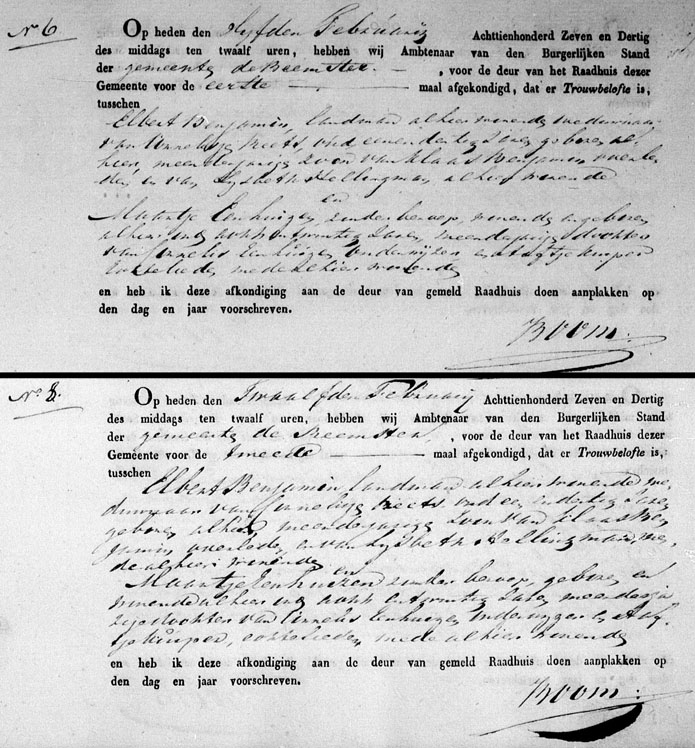 No 6
Op heden den Vijfden Februarij Achttienhonderd Zeven en Dertig
des middags ten twaalf uren, hebben wij Ambtenaar van den Burgerlijken Stand
der gemeente de Beemster , voor de deur van het Raadhuis dezer
Gemeente voor de eerste maal afgekondigd, dat er Trouwbelofte is,
tusschen
Elbert Benjamin, landman alhier wonende weduwnaar
van Anneligje Reets, oud een en dertig Jaren geboren al-
hier, meerderjarige zoon van Klaas Benjamin overle-
den, en van Lijsbeth Hellingman alhier wonende
en
Maantje Eenhuizen, zonder beroep, wonende en geboren
alhier oud acht en twintig Jaren, meerderjarige dochter
van Cornelis Eenhuizen Onderwijzer en Aagtje Kuiper
Echtelieden mede alhier wonende
en heb ik deze afkondiging aan de deur van gemeld Raadhuis doen aanplakken op
den dag en jaar voorschreven.
Boom
No 8.
Op heden den Twaalfden Februarij Achttienhonderd Zeven en Dertig
des middags ten twaalf uren, hebben wij Ambtenaar van den Burgerlijken Stand
der gemeente de Beemster , voor de deur van het Raadhuis dezer
Gemeente voor de tweede maal afgekondigd, dat er Trouwbelofte is,
tusschen
Elbert Benjamin, landman alhier wonende we-
duwnaar van Anneligje Reets oud een en dertig Jaren
geboren alhier meerderjarige zoon van Klaas Ben-
jamin overleden, en van Lijsbeth Hellingman, me-
de alhier wonende
en
Maantje Eenhuizen zonder beroep, geboren en
wonende alhier oud acht en twintig Jaren meerderja-
rige dochter van Cornelis Eenhuizen Onderwijzer en Aag-
tje Kuiper, echtelieden, mede alhier wonende
en heb ik deze afkondiging aan de deur van gemeld Raadhuis doen aanplakken op
den dag en jaar voorschreven.
Boom